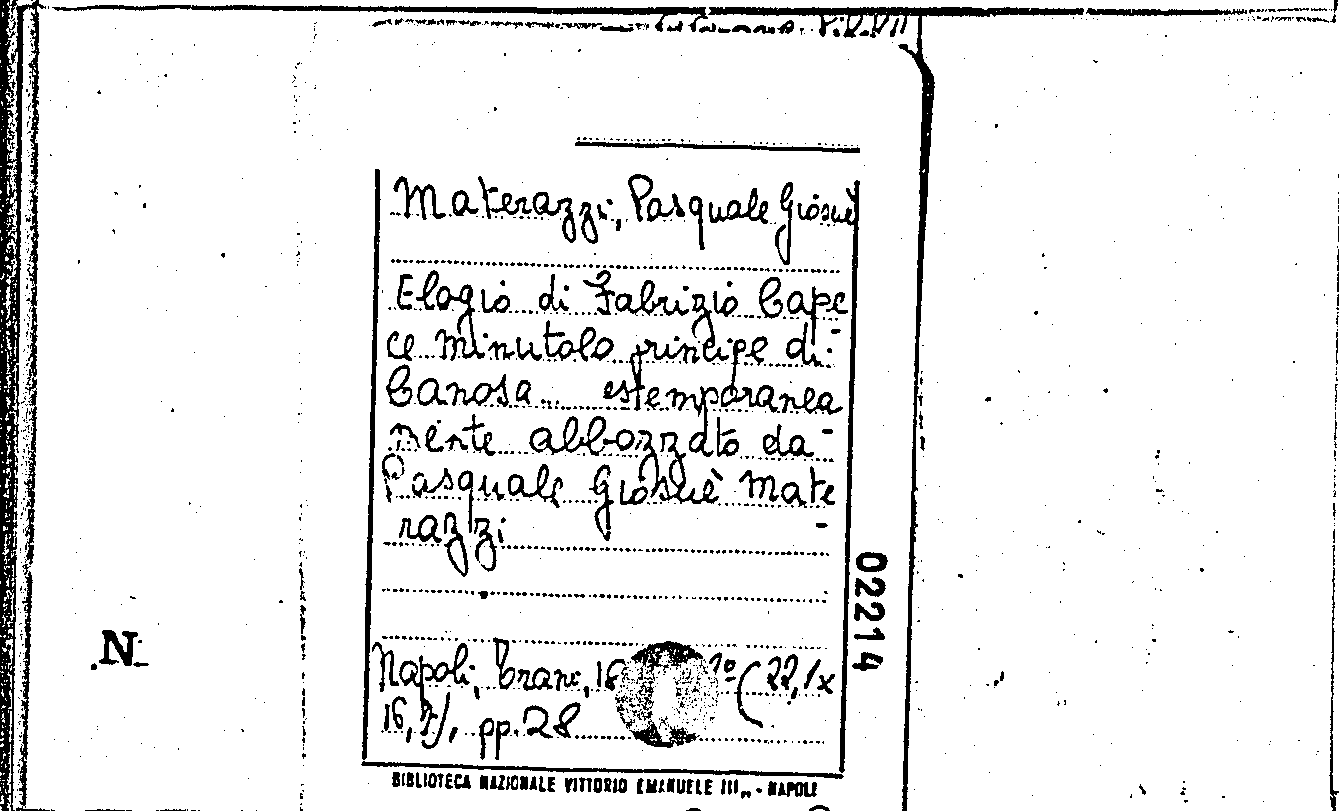 Materazzi, Pasquale Giosuè
Elogio di Fabrizio Cape
ce Minutolo principe di
Canosa... estemporanea
mente abbozzato da
Pasquale Giosuè Mate
razzi
02214
N
Napoli, Trani, 18 (22,1x
16,7), pp. 28
BIBLIOTECA NAZIONALE VITTORIO EMANUELE III„ - NAPOLI